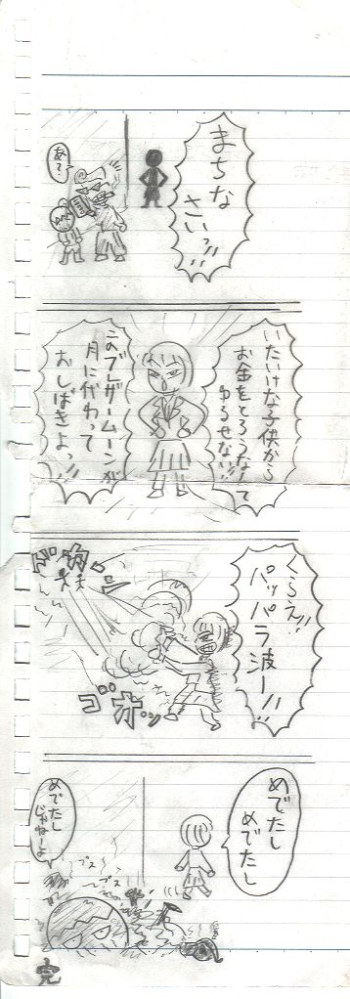 まちな
さいっ!!
あ?
いたいけな子供から
お金をとろうなんて
ゆるせない!!
このブレザームーンが
月に代わって
おしばきよっ!!
くらえ!!
パッパラ波ー!!
ドカーン
ゴオッ
めでたし
めでたし
ブスブス
めでたし
じゃねーよ
完